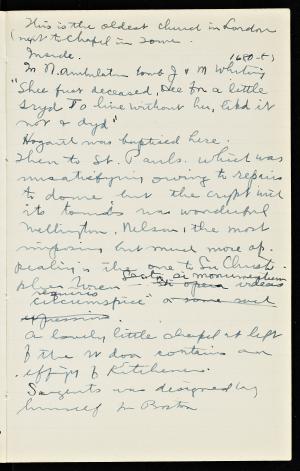 This is the oldest church in London
(next to Chapel in Tower.
Inside. 1680-5)
In N. ambulatory tomb J & M Whiting
"Shee first deceased, Hee for a little
Tryd To live without her, likd it
not & dyd"
Hogarth was baptised here.
Then to St. Pauls. which was
unsatisfying owing to repairs
to dome, but the crypt with
its tombs was wonderful
Wellington, Nelson, the most
imposing but much more ap-
pealing is the one to Sir Christ-
opher Wren "Lector, si monumentum
requiris circumspice" or some such
expression.
A lovely little chapel at left
of the W door contains an
effigy of Kitchener.
Sargents was designed by
himself in Boston